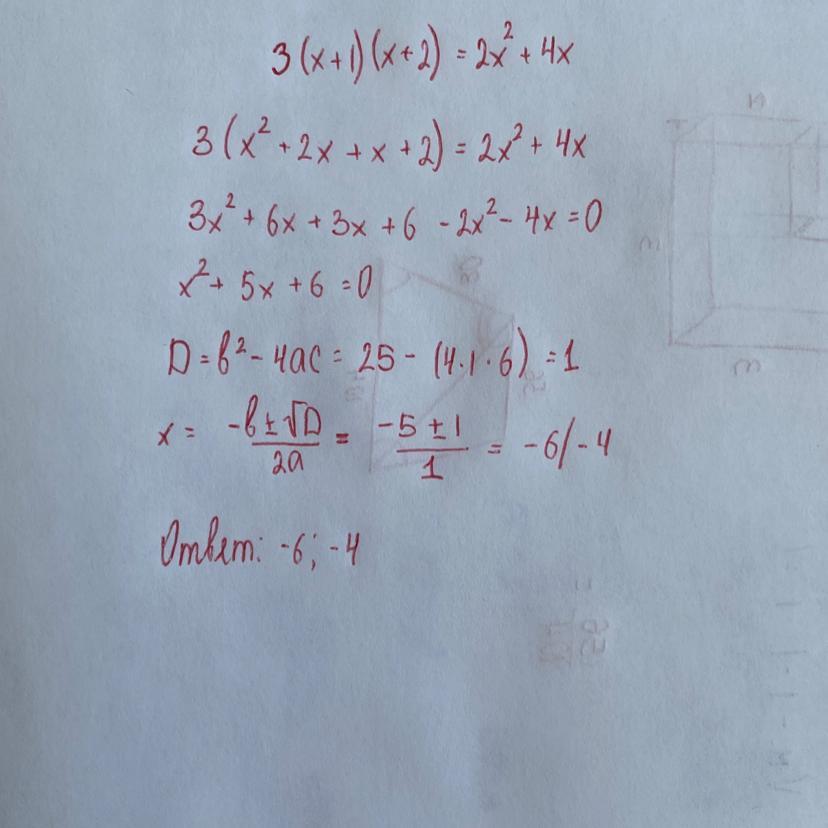 3(x+1)(x+2) = 2x² + 4x
3(x² + 2x + x + 2) = 2x² + 4x
3x² + 6x + 3x + 6 - 2x² - 4x = 0
x² + 5x + 6 = 0
D = b² - 4ac = 25 - (4·1·6) = 1
x = (-b ± √D)/2a = (-5 ± 1)/1 = -6/-4
Ответ: -6; -4